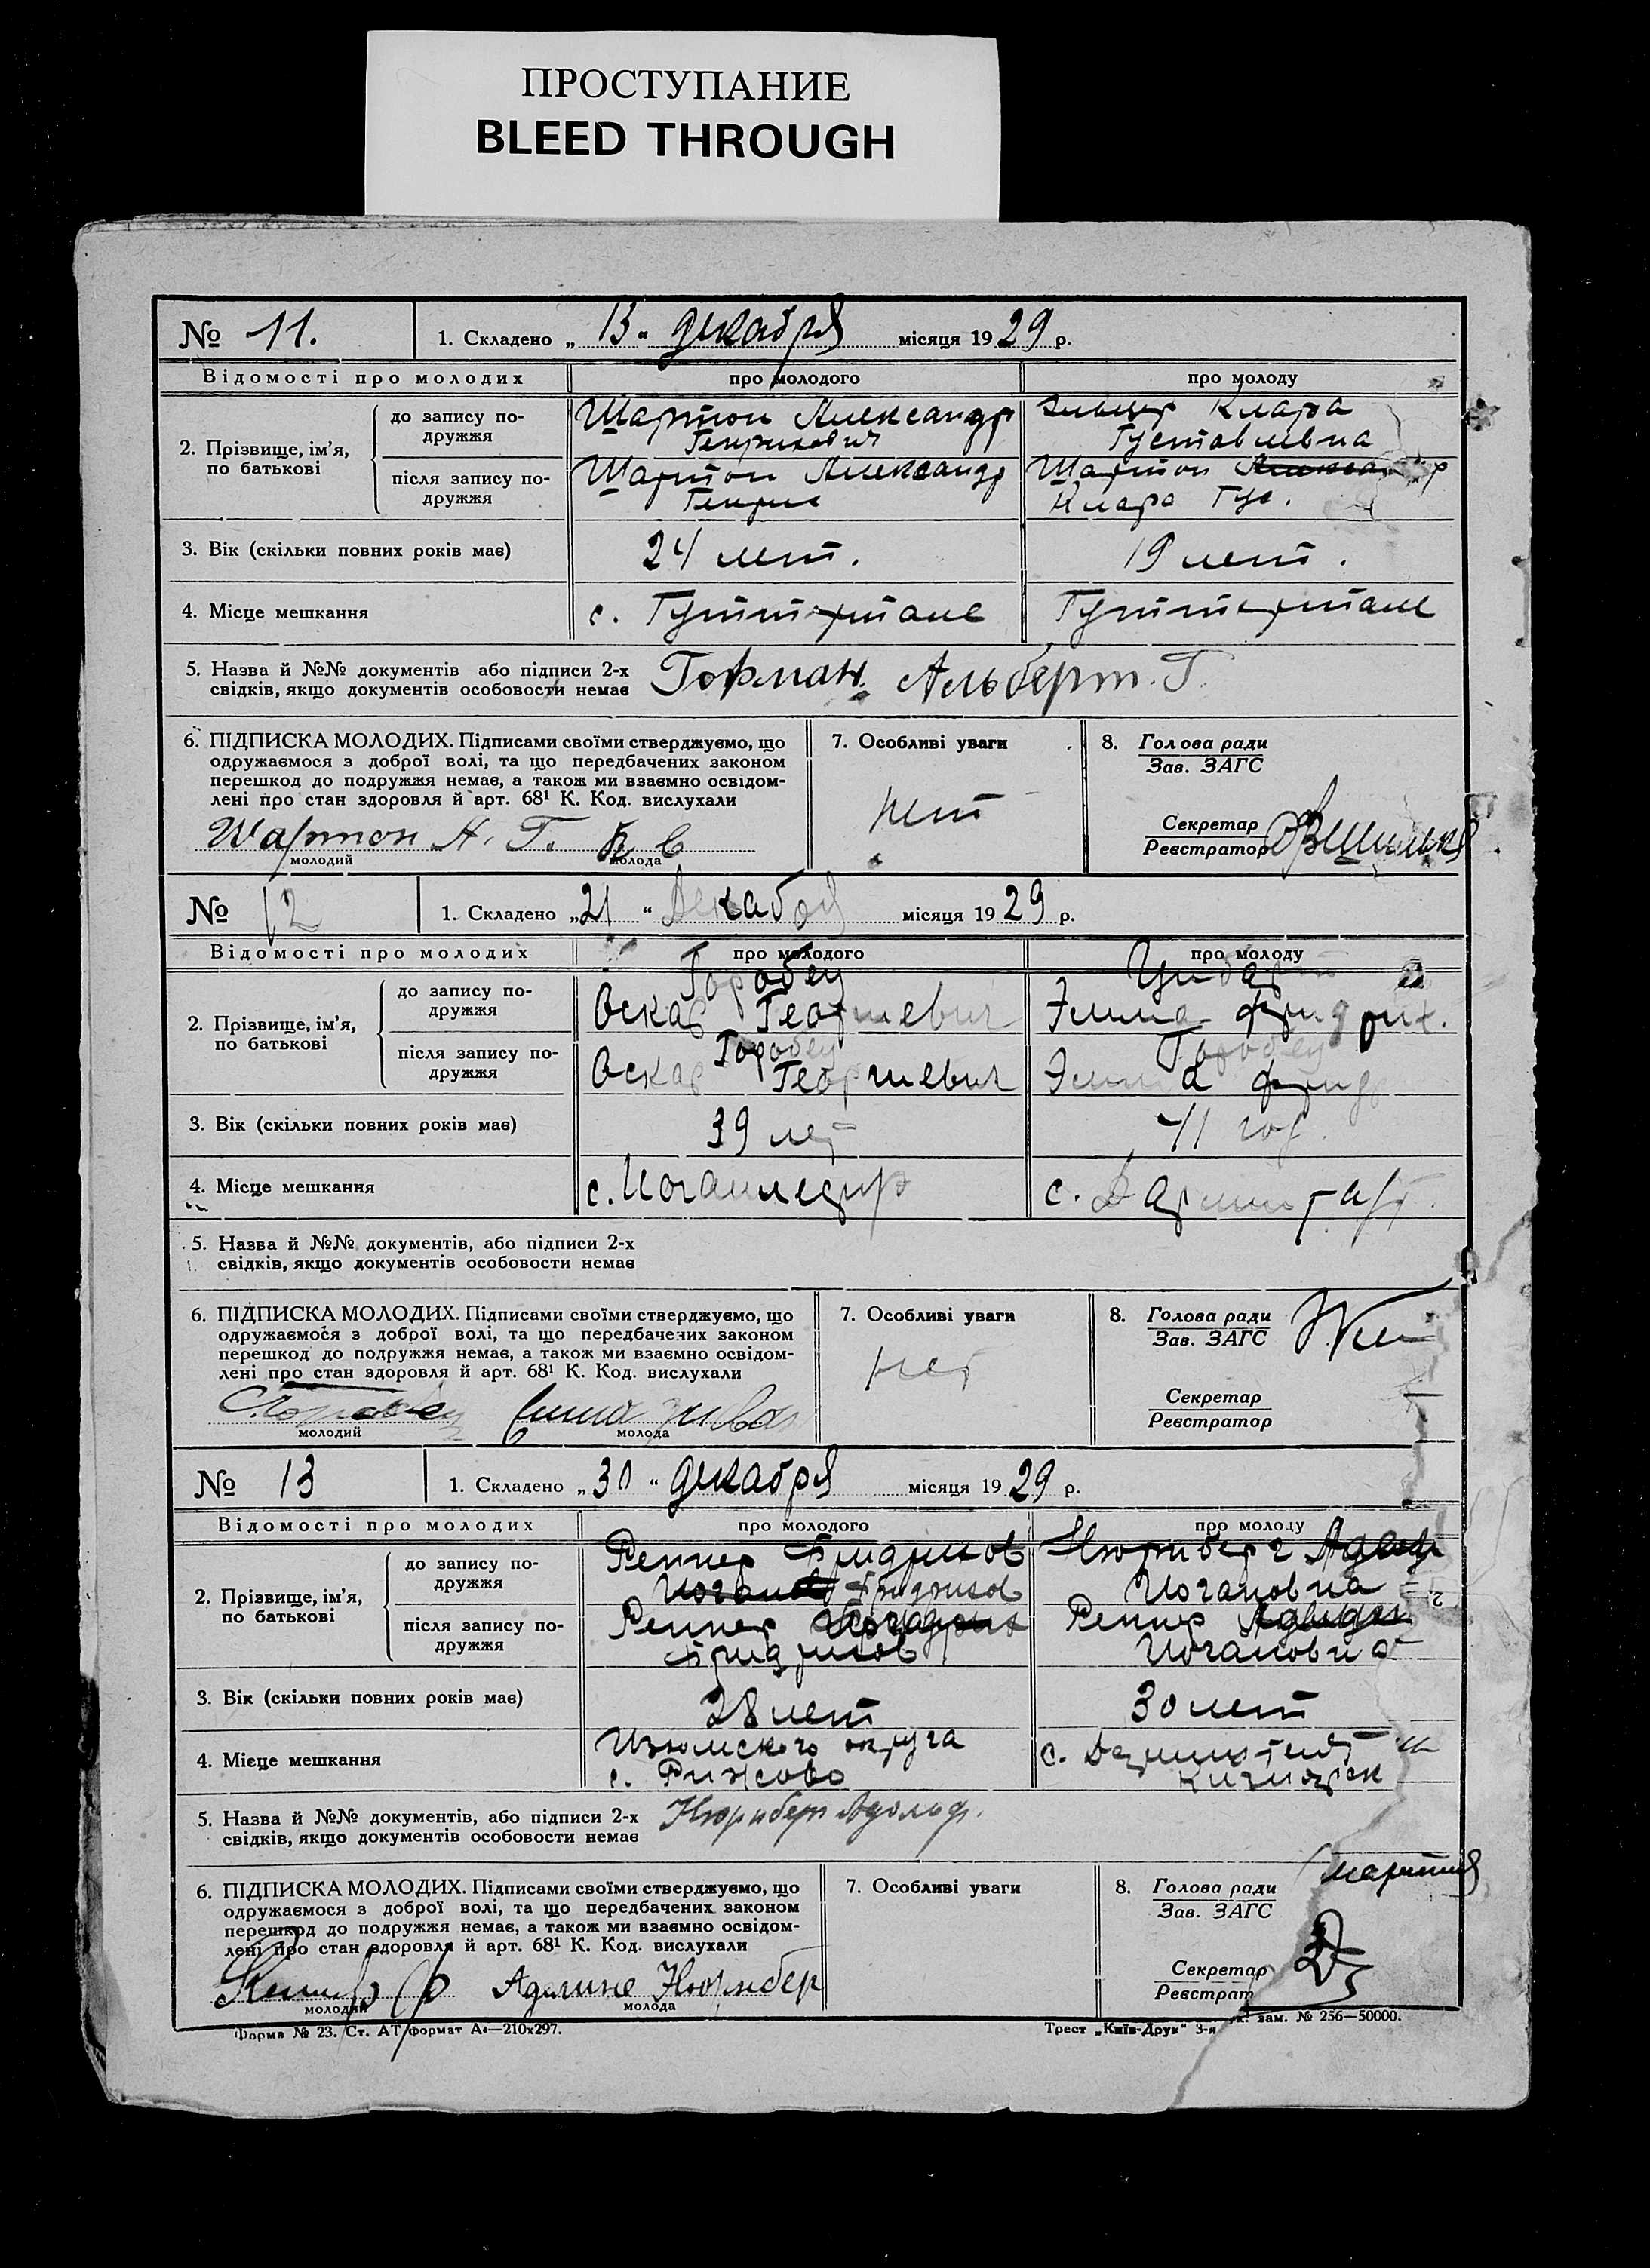 ПРОСТУПАНИЕ
BLEED THROUGH
№ 11. 1. Складено „13“ декабря місяця 1929 р.
Відомості про молодих про молодого про молоду
2. Прізвище, ім'я, по батькові
до запису подружжя Шартон Александр Клара
Генрихович Густавовна
після запису подружжя Шартон Александр Шартон
Генрих Клара Гус.
3. Вік (скільки повних років має) 24 лет. 19 лет.
4. Місце мешкання с. Гуттерталь Гуттерталь
5. Назва й №№ документів або підписи 2-х Гофман Альберт. Г.
свідків, якщо документів особовости немає
6. ПІДПИСКА МОЛОДИХ. Підписами своїми стверджуємо, що
одружаємося з доброї волі, та що передбачених законом
перешкод до подружжя немає, а також ми взаємно освідом-
лені про стан здоровля й арт. 68¹ К. Код. вислухали
Шартон А. Г.
молодий молода
7. Особливі уваги
нет
8. Голова ради
Зав. ЗАГС
Секретар
Реєстратор
№ 12 1. Складено „21“ Декабря місяця 1929 р.
Відомості про молодих про молодого про молоду
2. Прізвище, ім'я, по батькові
до запису подружжя Горобец
Оскар Георгиевич Эмма Фридрих.
після запису подружжя Горобец Горобец
Оскар Георгиевич Эмма Фридр
3. Вік (скільки повних років має) 39 лет 41 год.
4. Місце мешкання с. с. Дармштадт.
5. Назва й №№ документів, або підписи 2-х
свідків, якщо документів особовости немає
6. ПІДПИСКА МОЛОДИХ. Підписами своїми стверджуємо, що
одружаємося з доброї волі, та що передбачених законом
перешкод до подружжя немає, а також ми взаємно освідом-
лені про стан здоровля й арт. 68¹ К. Код. вислухали
молодий молода
7. Особливі уваги
нет
8. Голова ради
Зав. ЗАГС
Секретар
Реєстратор
№ 13 1. Складено „30“ декабря місяця 1929 р.
Відомості про молодих про молодого про молоду
2. Прізвище, ім'я, по батькові
до запису подружжя Реннер Фридрихов Нюрнберг
Фридрихов Иогановна
після запису подружжя Реннер Реннер
Фридрихов Иогановна
3. Вік (скільки повних років має) 28 лет 30 лет
4. Місце мешкання Изюмского округа с.
с. Рижово
5. Назва й №№ документів, або підписи 2-х Нюрнберг Адольф.
свідків, якщо документів особовости немає
6. ПІДПИСКА МОЛОДИХ. Підписами своїми стверджуємо, що
одружаємося з доброї волі, та що передбачених законом
перешкод до подружжя немає, а також ми взаємно освідом-
лені про стан здоровля й арт. 68¹ К. Код. вислухали
Аделине Нюрнбер
молодий молода
7. Особливі уваги
8. Голова ради
Зав. ЗАГС
Секретар
Реєстрат
Форма № 23. Ст. АТ формат А₄—210х297.
Трест „Київ-Друк“ 3-я зам. № 256—50000.